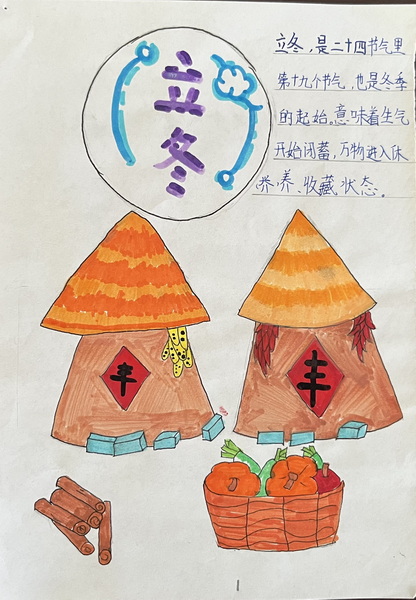 立冬
立冬，是二十四节气里
第十九个节气，也是冬季
的起始。意味着生气
开始闭蓄，万物进入休
养、收藏状态。
丰
丰